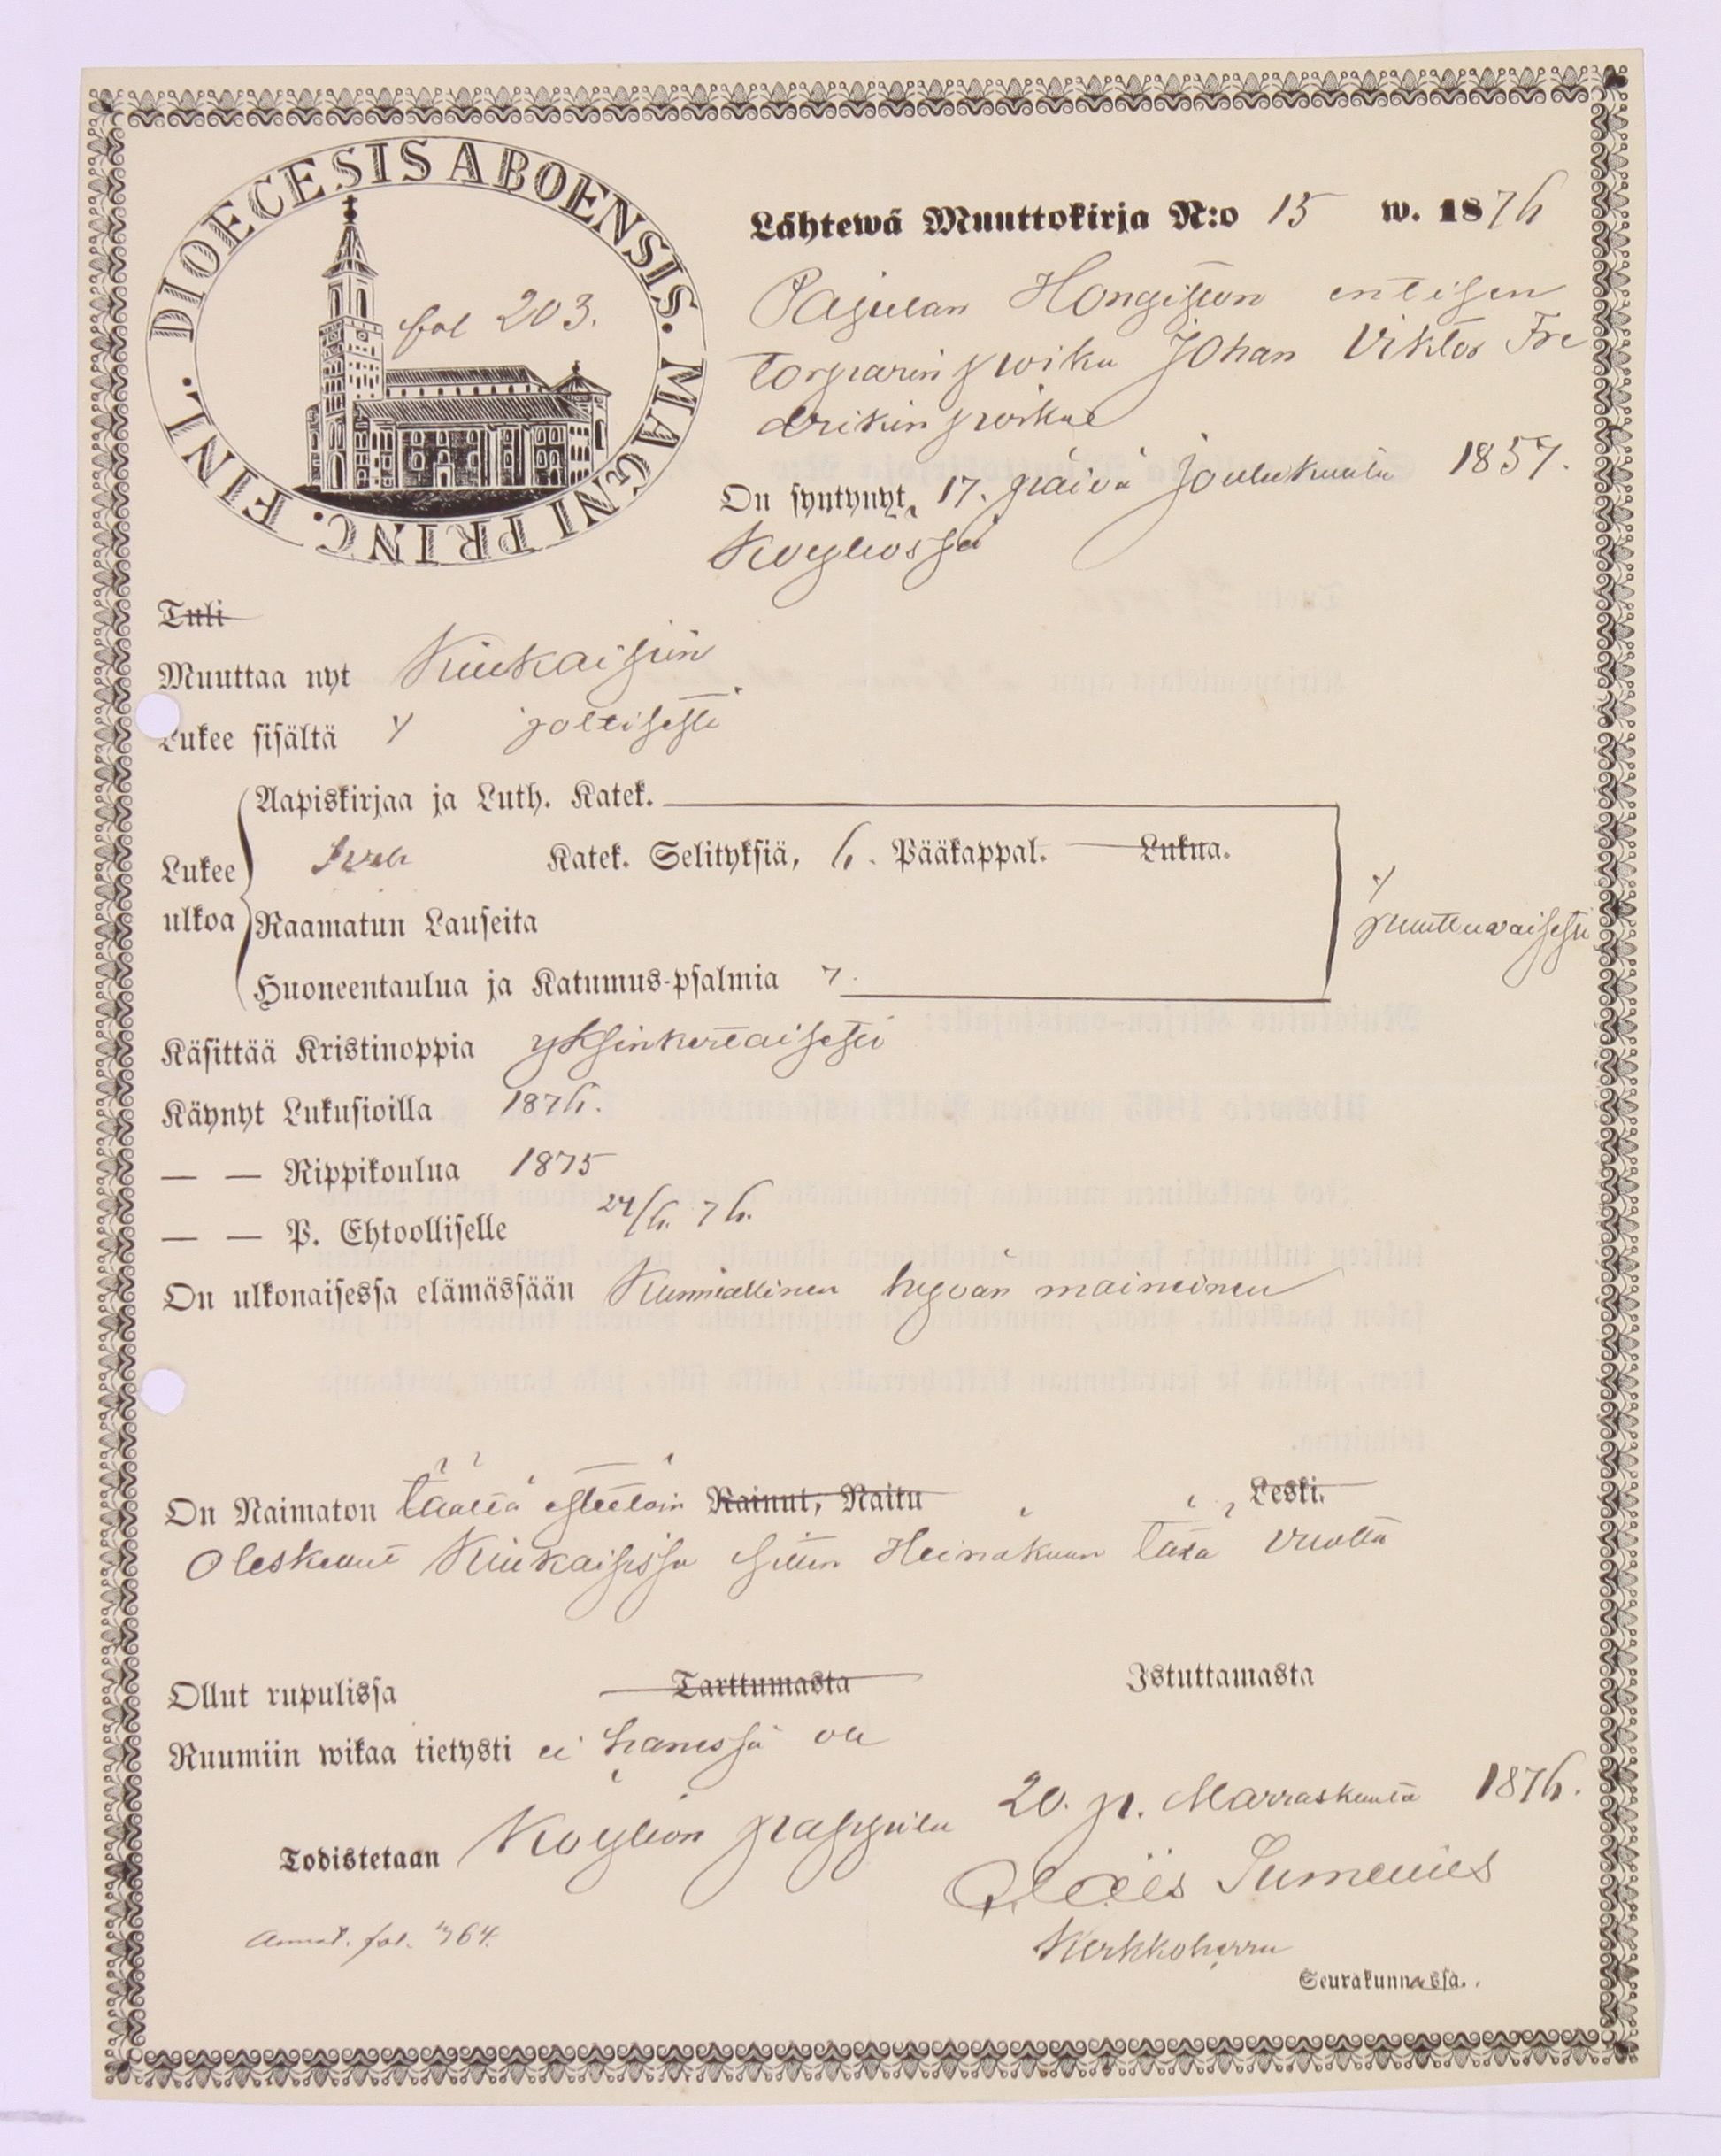 DIOECESIS ABOENSIS. MAGNI PRINC. FINL.
fol 203.
Lähtewä Muuttokirja N:o 15 w. 1876
Pajulan Hongiston entisen
torparin poika Johan Viktor Fre
drikin poika
On syntynyt 17. päivä Joulukuuta 1857.
Köyliössä
Tuli
Muuttaa nyt Kiukaisiin
Lukee sisältä joltisesti
Aapiskirjaa ja Luth. Katek.
Lukee ulkoa Sveb Katek. Selityksiä, 6. Pääkappal. Lukua.
puuttuvaisesti
Raamatun Lauseita
Huoneentaulua ja Katumus-psalmia
Käsittää Kristinoppia yksinkertaisesti
Käynyt Lukusioilla 1876.
— — Rippikoulua 1875
— — P. Ehtoolliselle 24/6. 76.
On ulkonaisessa elämässään Kunniallinen hyvän maineinen
On Naimaton täältä esteetöin Nainut, Naitu Leski.
Oleskellut Kiukaisissa sitten Heinäkuun tätä vuotta
Ollut rupulissa Tarttumasta Istuttamasta
Ruumiin wikaa tietysti ei hänessä ole
Todistetaan Köyliön pappila 20. p. Marraskuuta 1876.
Sumelius
Annot. fol. 764.
Kirkkoherra
Seurakunnassa.